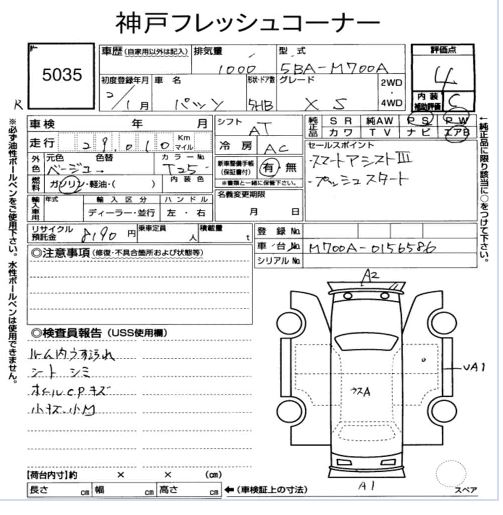 神戸フレッシュコーナー
5035
R
車歴 (自家用以外は記入) 排気量 型式
1000 5BA-M700A
評価点
4
初度登録年月 車名 形状・ドア数 グレード 2WD・4WD
2/1月 パッソ 5HB XS
内装補助評価 C
車検 年 月
シフト AT
純正品 SR 純AW PS PW
カワ TV ナビ エアB
走行 29,010 Km マイル
冷房 AC
セールスポイント
スマートアシストIII
プッシュスタート
外色 元色 色替 カラーNo.
ベージュ T25
内装色
燃料 ガソリン・軽油・( )
新車整備手帳 (保証書付) 有・無
※書類と一緒に保管下さい。
輸入車用 年式 輸入区分 ハンドル
ディーラー・並行 左・右
名義変更期限
月 日
リサイクル預託金 8190円 乗車定員 人 積載量 t
登録No.
車/台No. M700A-0156586
シリアルNo.
◎注意事項 (修復・不具合箇所および状態等)
◎検査員報告 (USS使用欄)
ルーム内うすよごれ
シート シミ
ホイールC.P.キズ
小キズ・小M
A2
ウスA
UA1
A1
スペア
【荷台内寸】約 × ×
長さ cm 幅 cm 高さ cm ←(車検証上の寸法)
※必ず油性ボールペンをご使用下さい。水性ボールペンは使用できません。
※純正品に限り該当に○をつけて下さい。